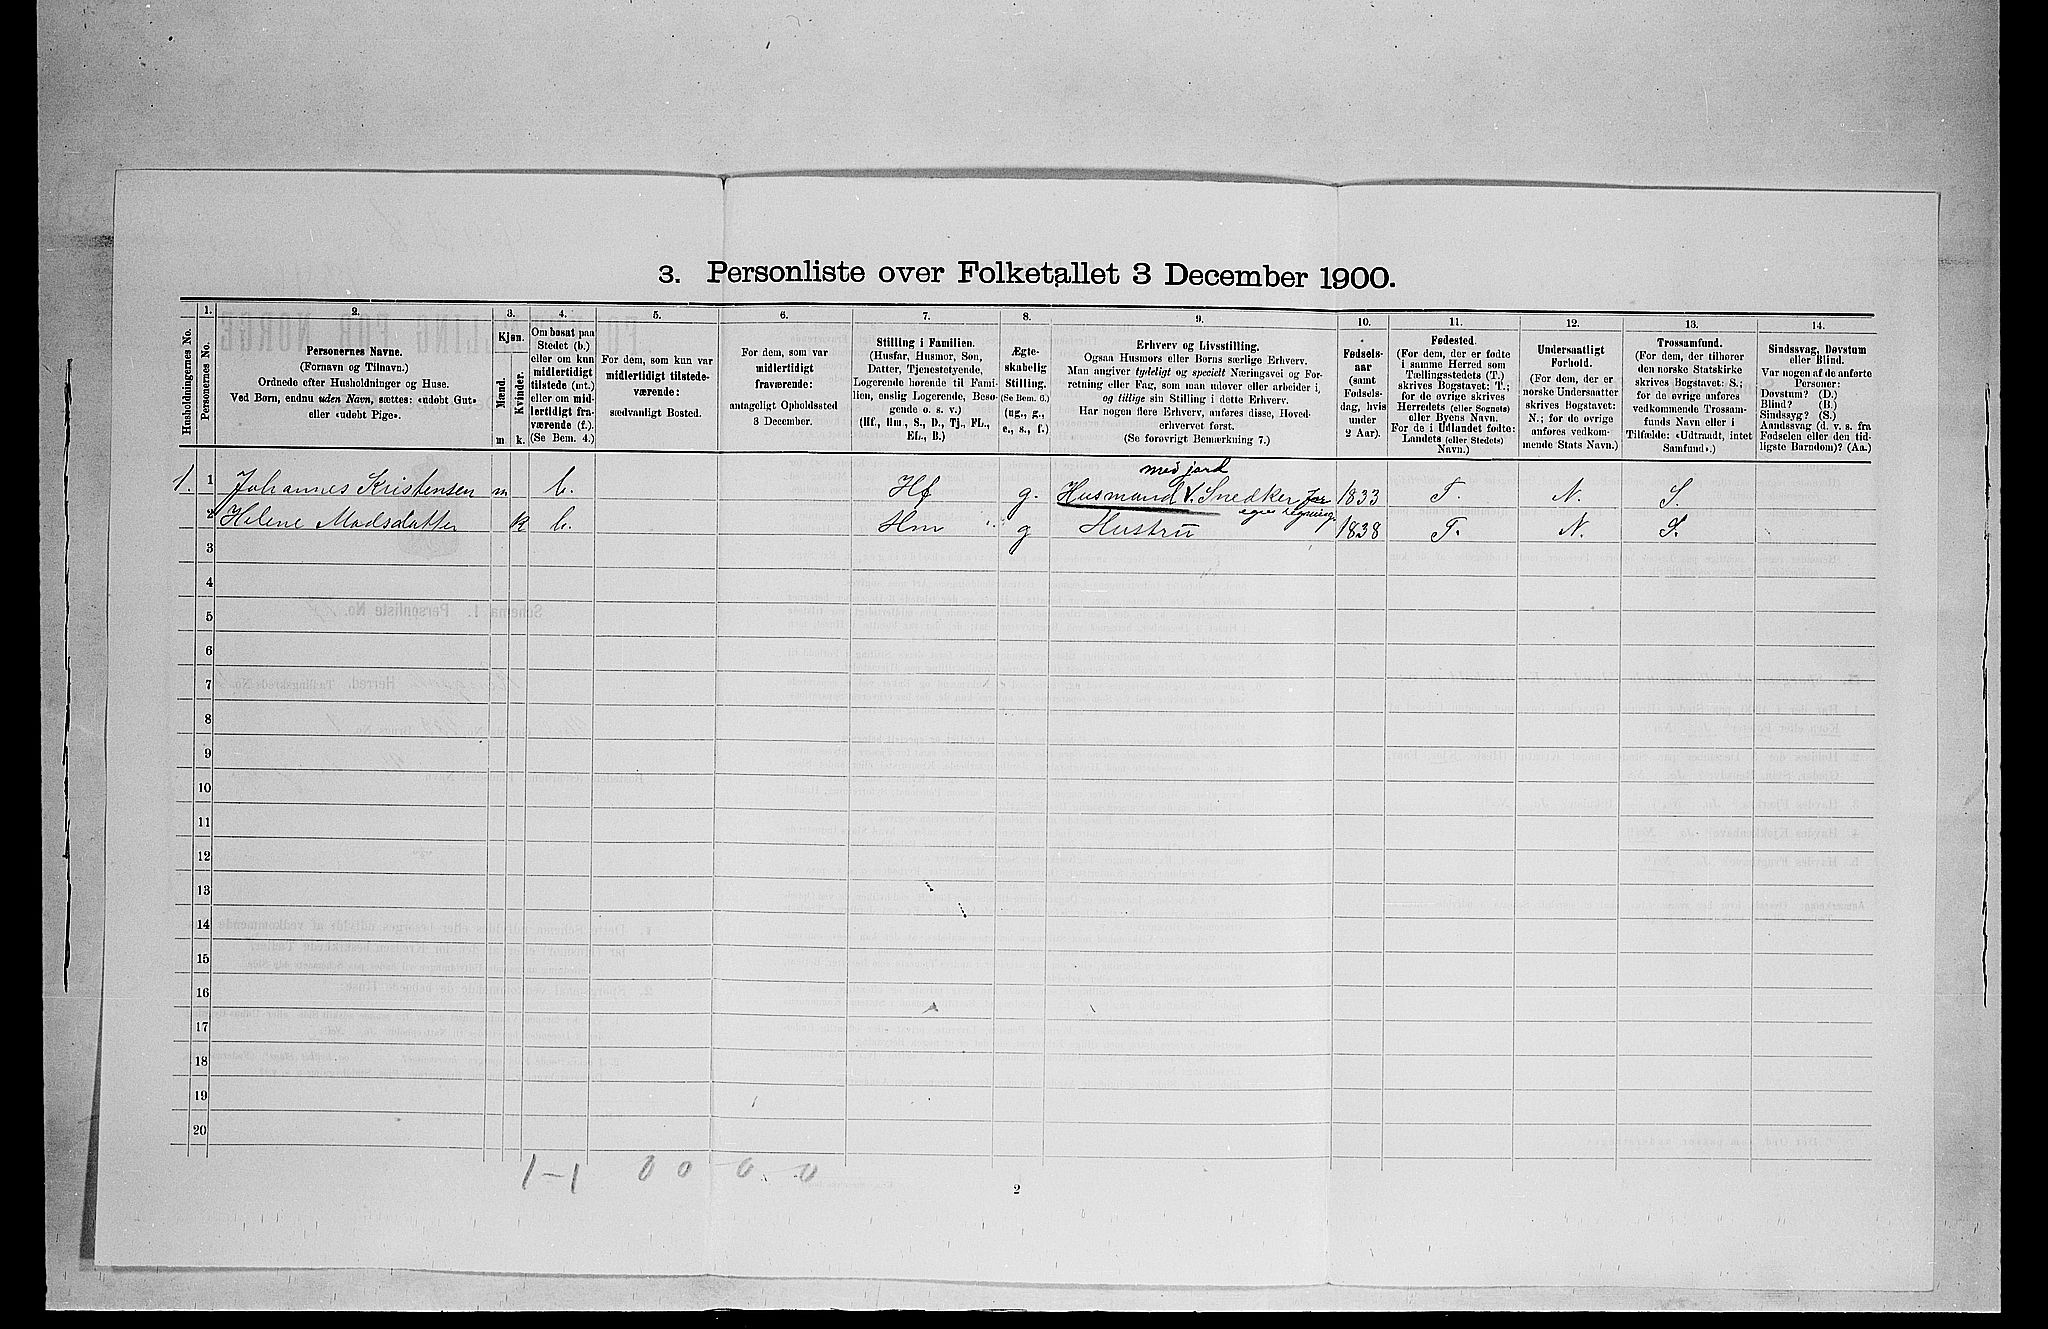 3. Personliste over Folketallet 3 December 1900.
Husholdningernes No.
1.
Personernes No.
2.
Personernes Navne.
(Fornavn og Tilnavn.)
Ordnede efter Husholdninger og Huse.
Ved Børn, endnu uden Navn, sættes: «udøbt Gut»
eller «udøbt Pige».
3.
Kjøn.
Mænd.
Kvinder.
m k.
4.
Om bosat paa
Stedet (b.)
eller om kun
midlertidigt
tilstede (mt.)
eller om mid-
lertidigt fra-
værende (f.).
(Se Bem. 4.)
5.
For dem, som kun var
midlertidigt tilstede-
værende:
sædvanligt Bosted.
6.
For dem, som var
midlertidigt
fraværende:
antageligt Opholdssted
3 December.
7.
Stilling i Familien.
(Husfar, Husmor, Søn,
Datter, Tjenestetyende,
Logerende hørende til Fami-
lien, enslig Logerende, Besø-
gende o. s. v.)
(Hf., Hm., S., D., Tj., FL.,
EL., B.)
8.
Ægte-
skabelig
Stilling.
(Se Bem. 6.)
(ug., g.,
e., s., f.)
9.
Erhverv og Livsstilling.
Ogsaa Husmors eller Børns særlige Erhverv.
Man angiver tydeligt og specielt Næringsvei og For-
retning eller Fag, som man udøver eller arbeider i,
og tillige sin Stilling i dette Erhverv.
Har nogen flere Erhverv, anføres disse, Hoved-
erhvervet først.
(Se forøvrigt Bemærkning 7.)
10.
Fødsels-
aar
(samt
Fødsels-
dag, hvis
under
2 Aar).
11.
Fødested.
(For dem, der er fødte
i samme Herred som
Tællingsstedets (T.)
skrives Bogstavet: T.;
for de øvrige skrives
Herredets (eller Sognets)
eller Byens Navn.
For de i Udlandet fødte:
Landets (eller Stedets)
Navn.)
12.
Undersaatligt
Forhold.
(For dem, der er
norske Undersaatter
skrives Bogstavet:
N.; for de øvrige
anføres vedkom-
mende Stats Navn.)
13.
Trossamfund.
(For dem, der tilhører
den norske Statskirke
skrives Bogstavet: S.;
for de øvrige anføres
vedkommende Trossam-
funds Navn eller i
Tilfælde: «Udtraadt, intet
Samfund».)
14.
Sindssvag, Døvstum
eller Blind.
Var nogen af de anførte
Personer:
Døvstum? (D.)
Blind? (B.)
Sindssyg? (S.)
Aandssvag (d. v. s. fra
Fødselen eller den tid-
ligste Barndom)? (Aa.)
med jord
1. 1 Johannes Kristensen m b. Hf g. Husmand Snedker for 1833 T. N. S.
egen regning
2 Helene Madsdatter k b. Hm g Hustru 1838 T. N. S.
3
4
5
6
7
8
9
10
11
12
13
14
15
16
17
18
19
20
1-1 0 0 0 0
2